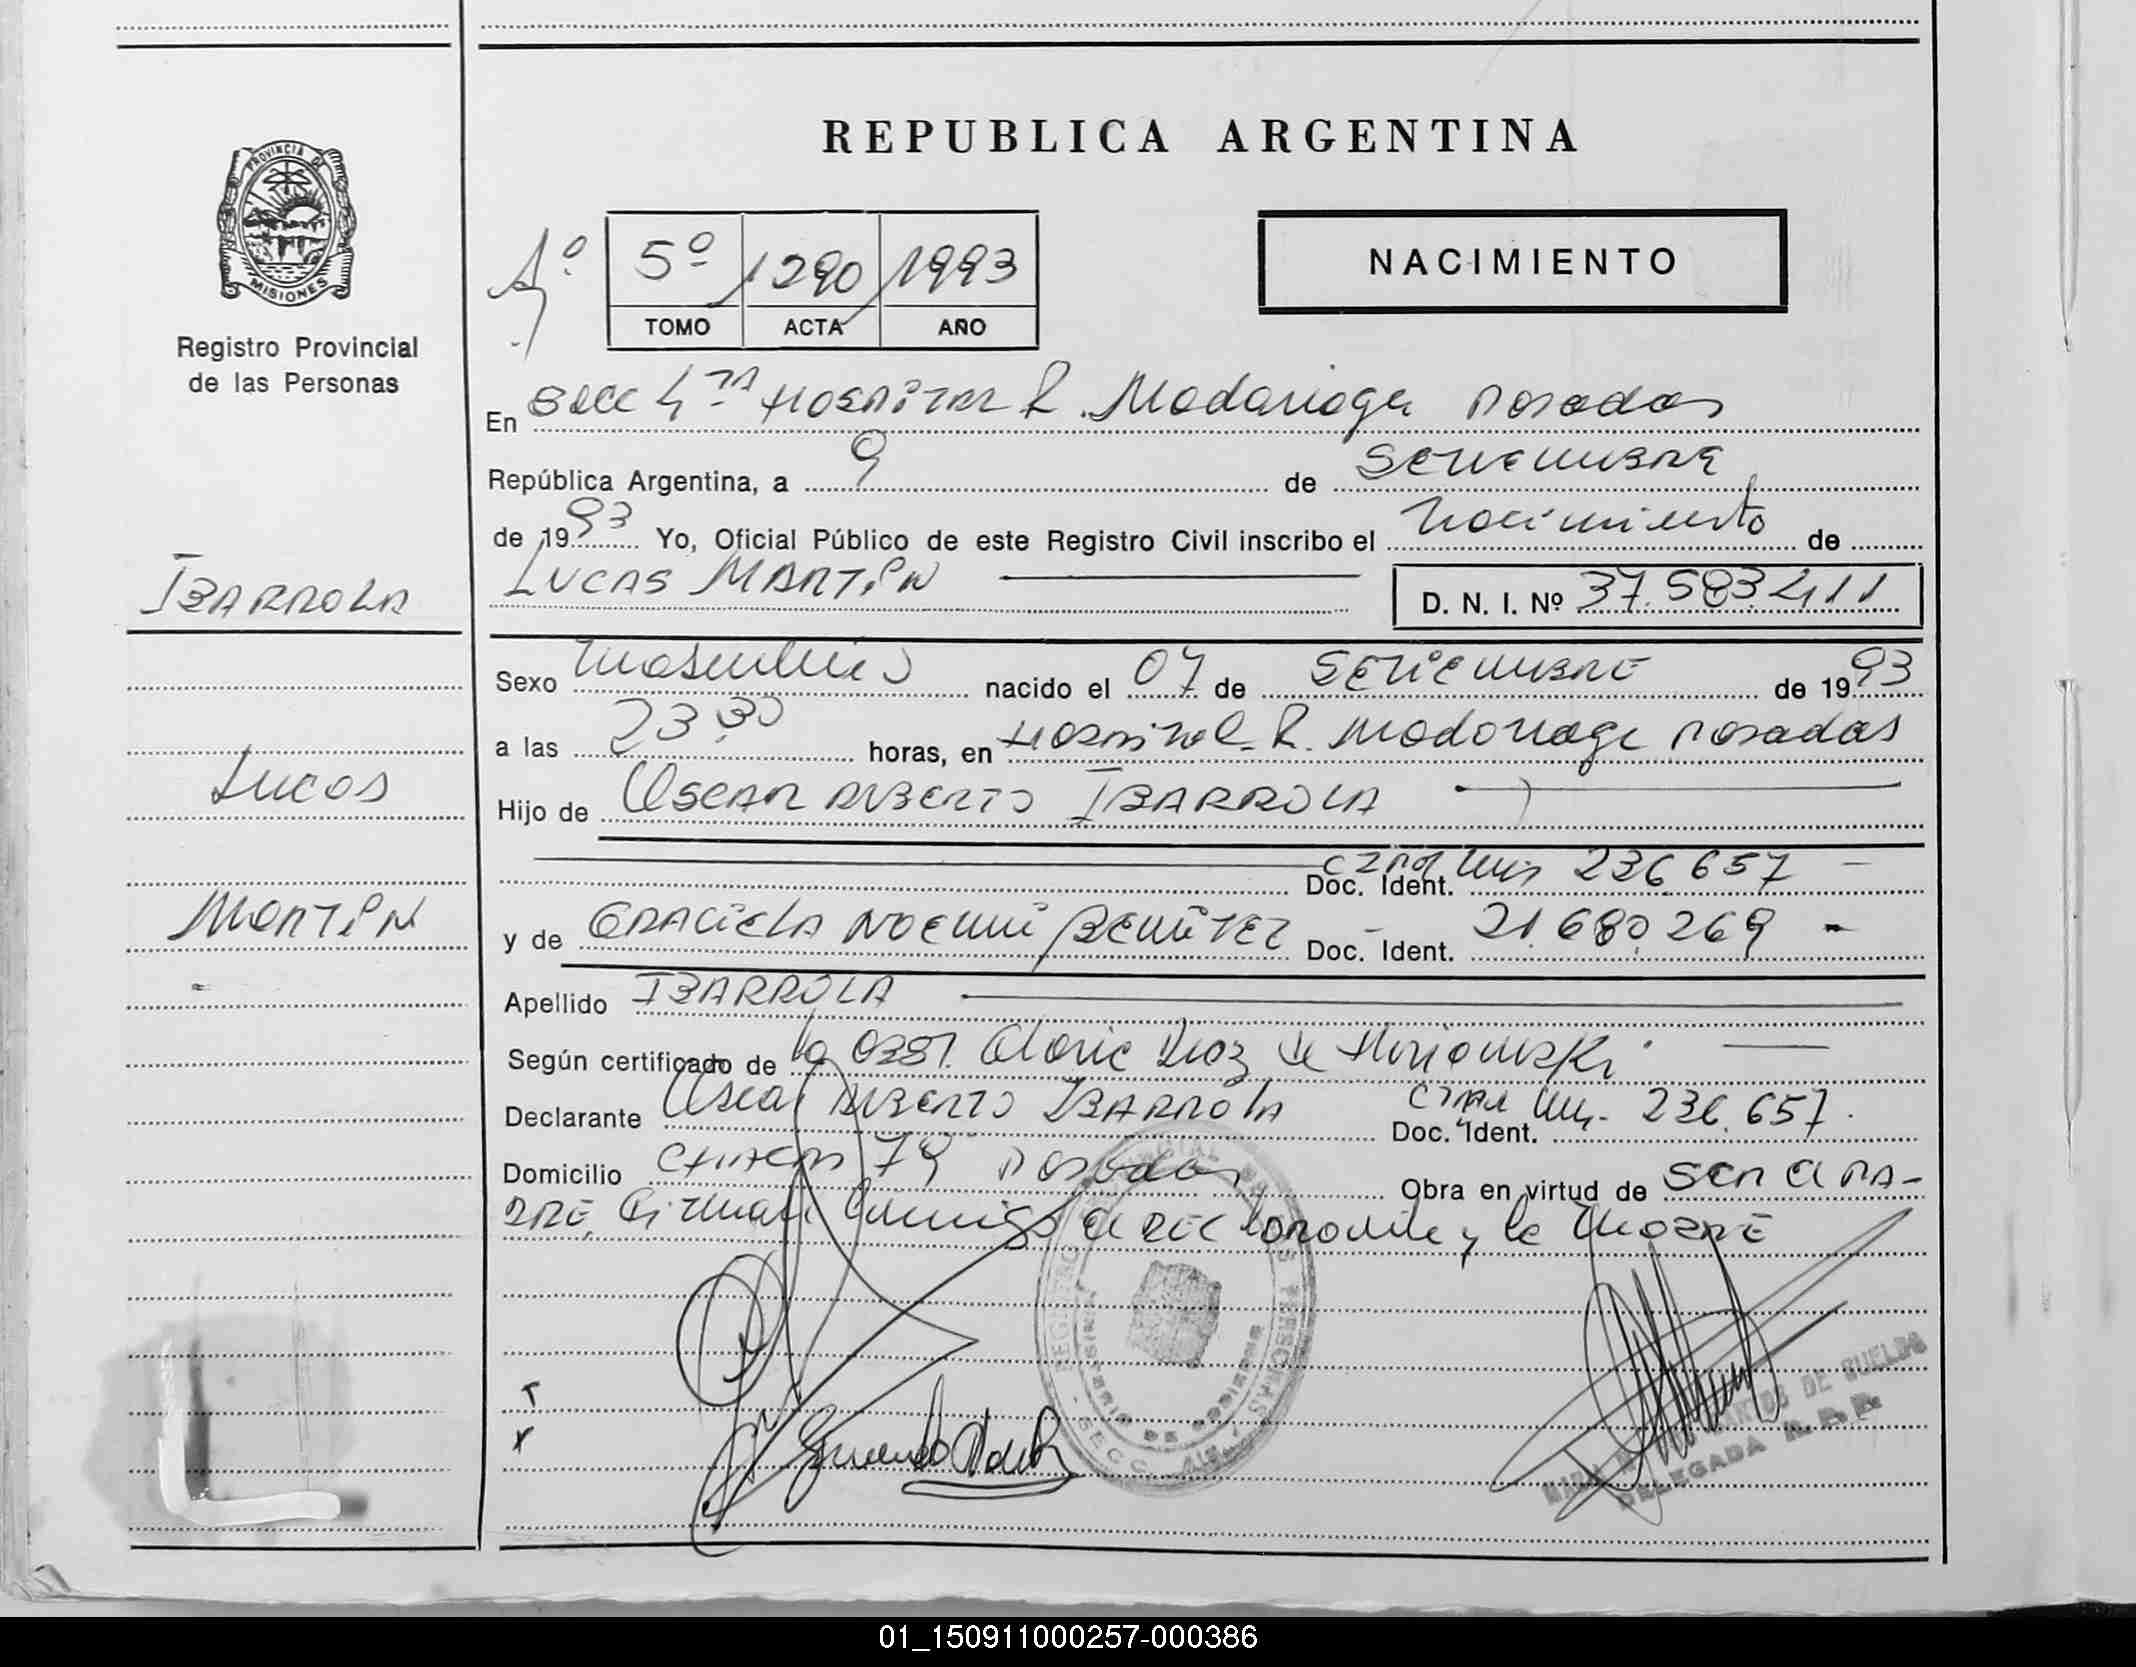 PROVINCIA DE
MISIONES
Registro Provincial
de las Personas
REPUBLICA ARGENTINA
Aº 5º 1290 1993
TOMO ACTA AÑO
NACIMIENTO
En Secc 4ta Hospital R. Madariaga Posadas
República Argentina, a 9 de SETIEMBRE
de 1993 Yo, Oficial Público de este Registro Civil inscribo el Nacimiento de
LUCAS MARTIN D. N. I. Nº 37.583.411
IBARROLA
Sexo Masculino nacido el 07 de SETIEMBRE de 1993
a las 23,30 horas, en Hospital R. Madariaga Posadas
Lucas
Hijo de OSCAR ALBERTO IBARROLA
Doc. Ident. 236.657
MARTIN
y de GRACIELA NOEMI BENITEZ Doc. Ident. 21.680.269
Apellido IBARROLA
Según certificado de la OBST. Gloria Diaz de
Declarante Oscar ALBERTO IBARROLA Doc. Ident. 236.657.
Domicilio 79 Posadas Obra en virtud de SER el PA-
DRE, Firman conmigo el DECLARANTE y la MADRE
DELEGADA R.P.P.
01_150911000257-000386